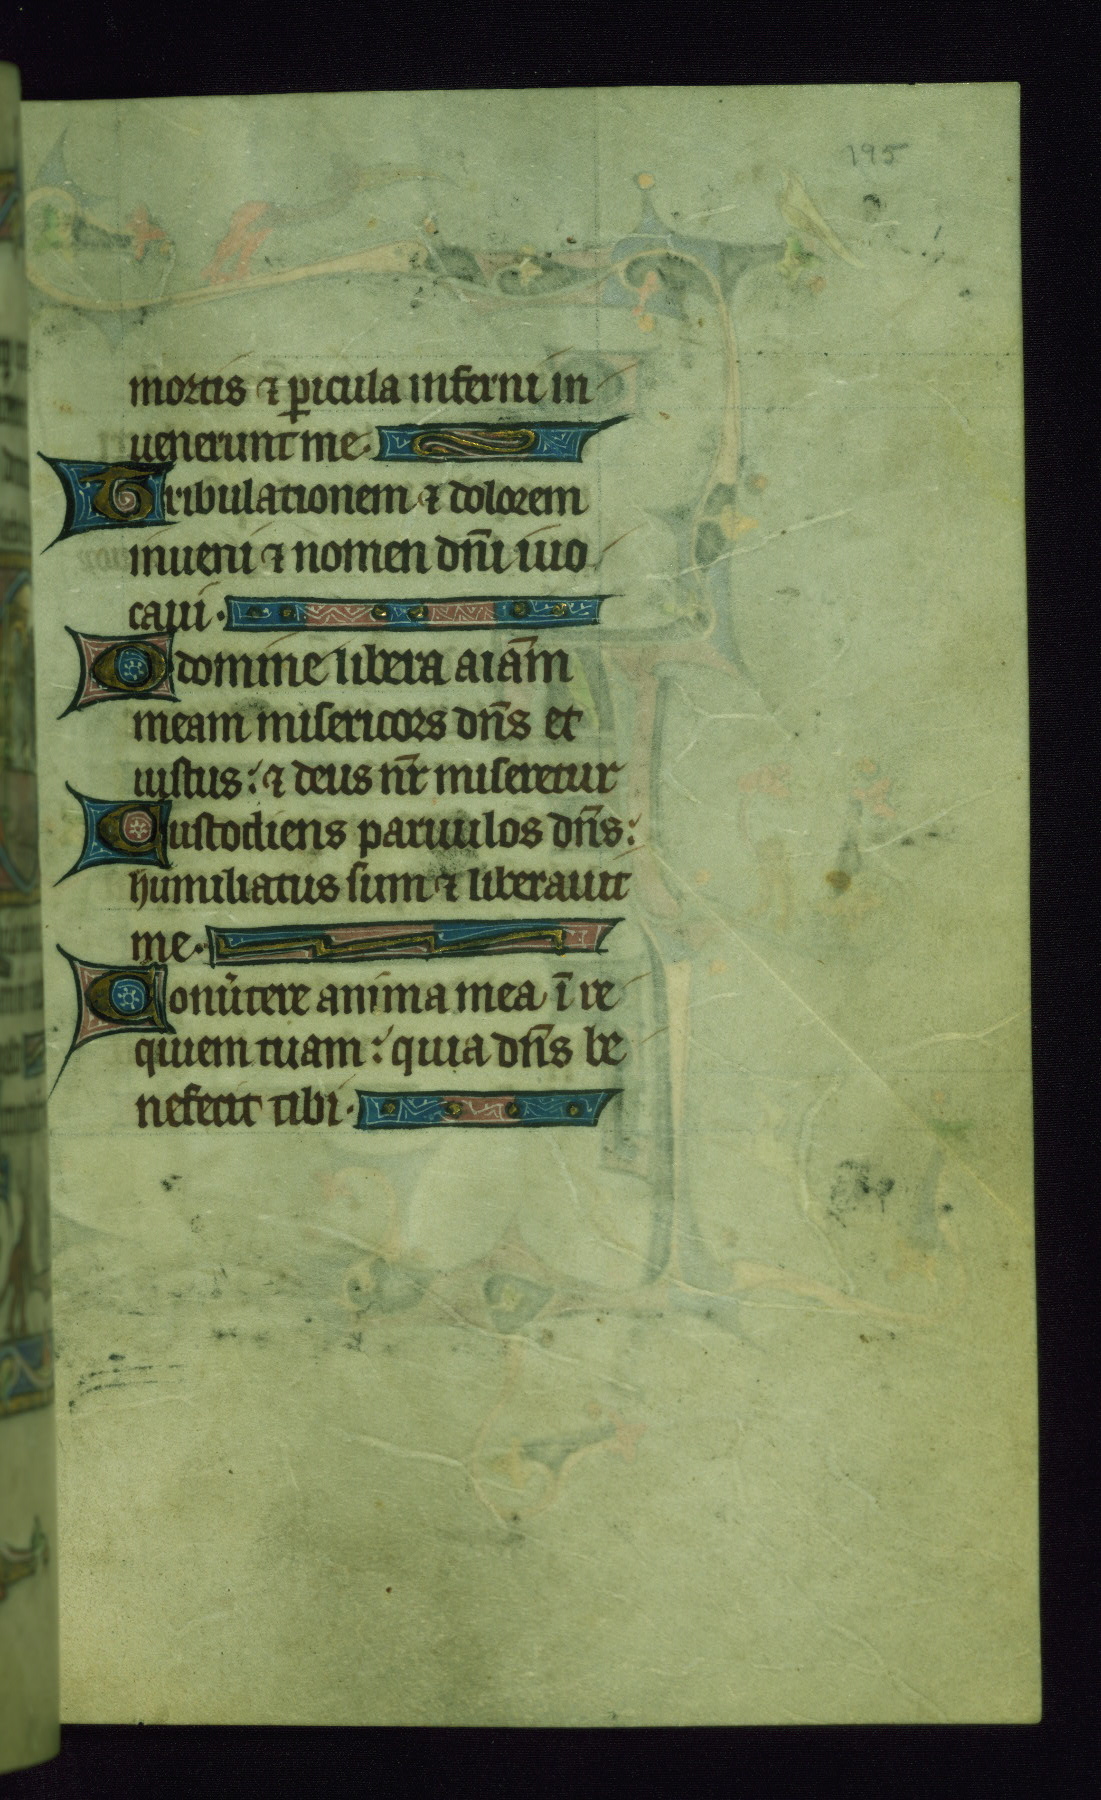 195
mortis ⁊ ꝑicula inferni in
uenerunt me.
Tribulationem ⁊ dolorem
inueni ⁊ nomen dn̄i iuo
caui.
O domine libera aīam
meam misericors dn̄s et
iustus: ⁊ deus nr̄ miseretur
Custodiens paruulos dn̄s:
humiliatus sum ⁊ liberauit
me.
Conũtere anima mea ī re
quiem tuam: quia dn̄s be
nefecit tibi.